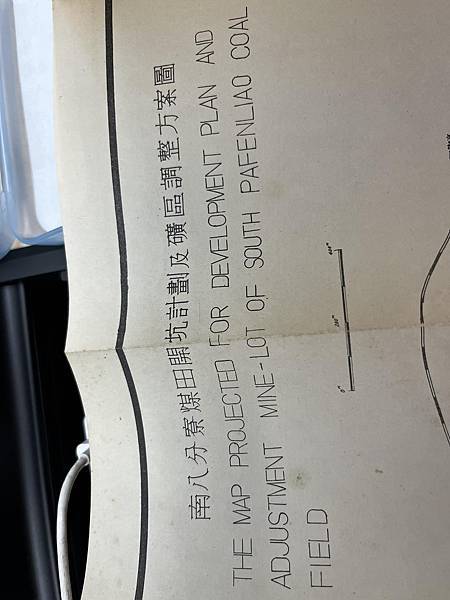 南八分寮煤田開坑計劃及礦區調整方案圖
THE MAP PROJECTED FOR DEVELOPMENT PLAN AND
ADJUSTMENT MINE-LOT OF SOUTH PAFENLIAO COAL
FIELD